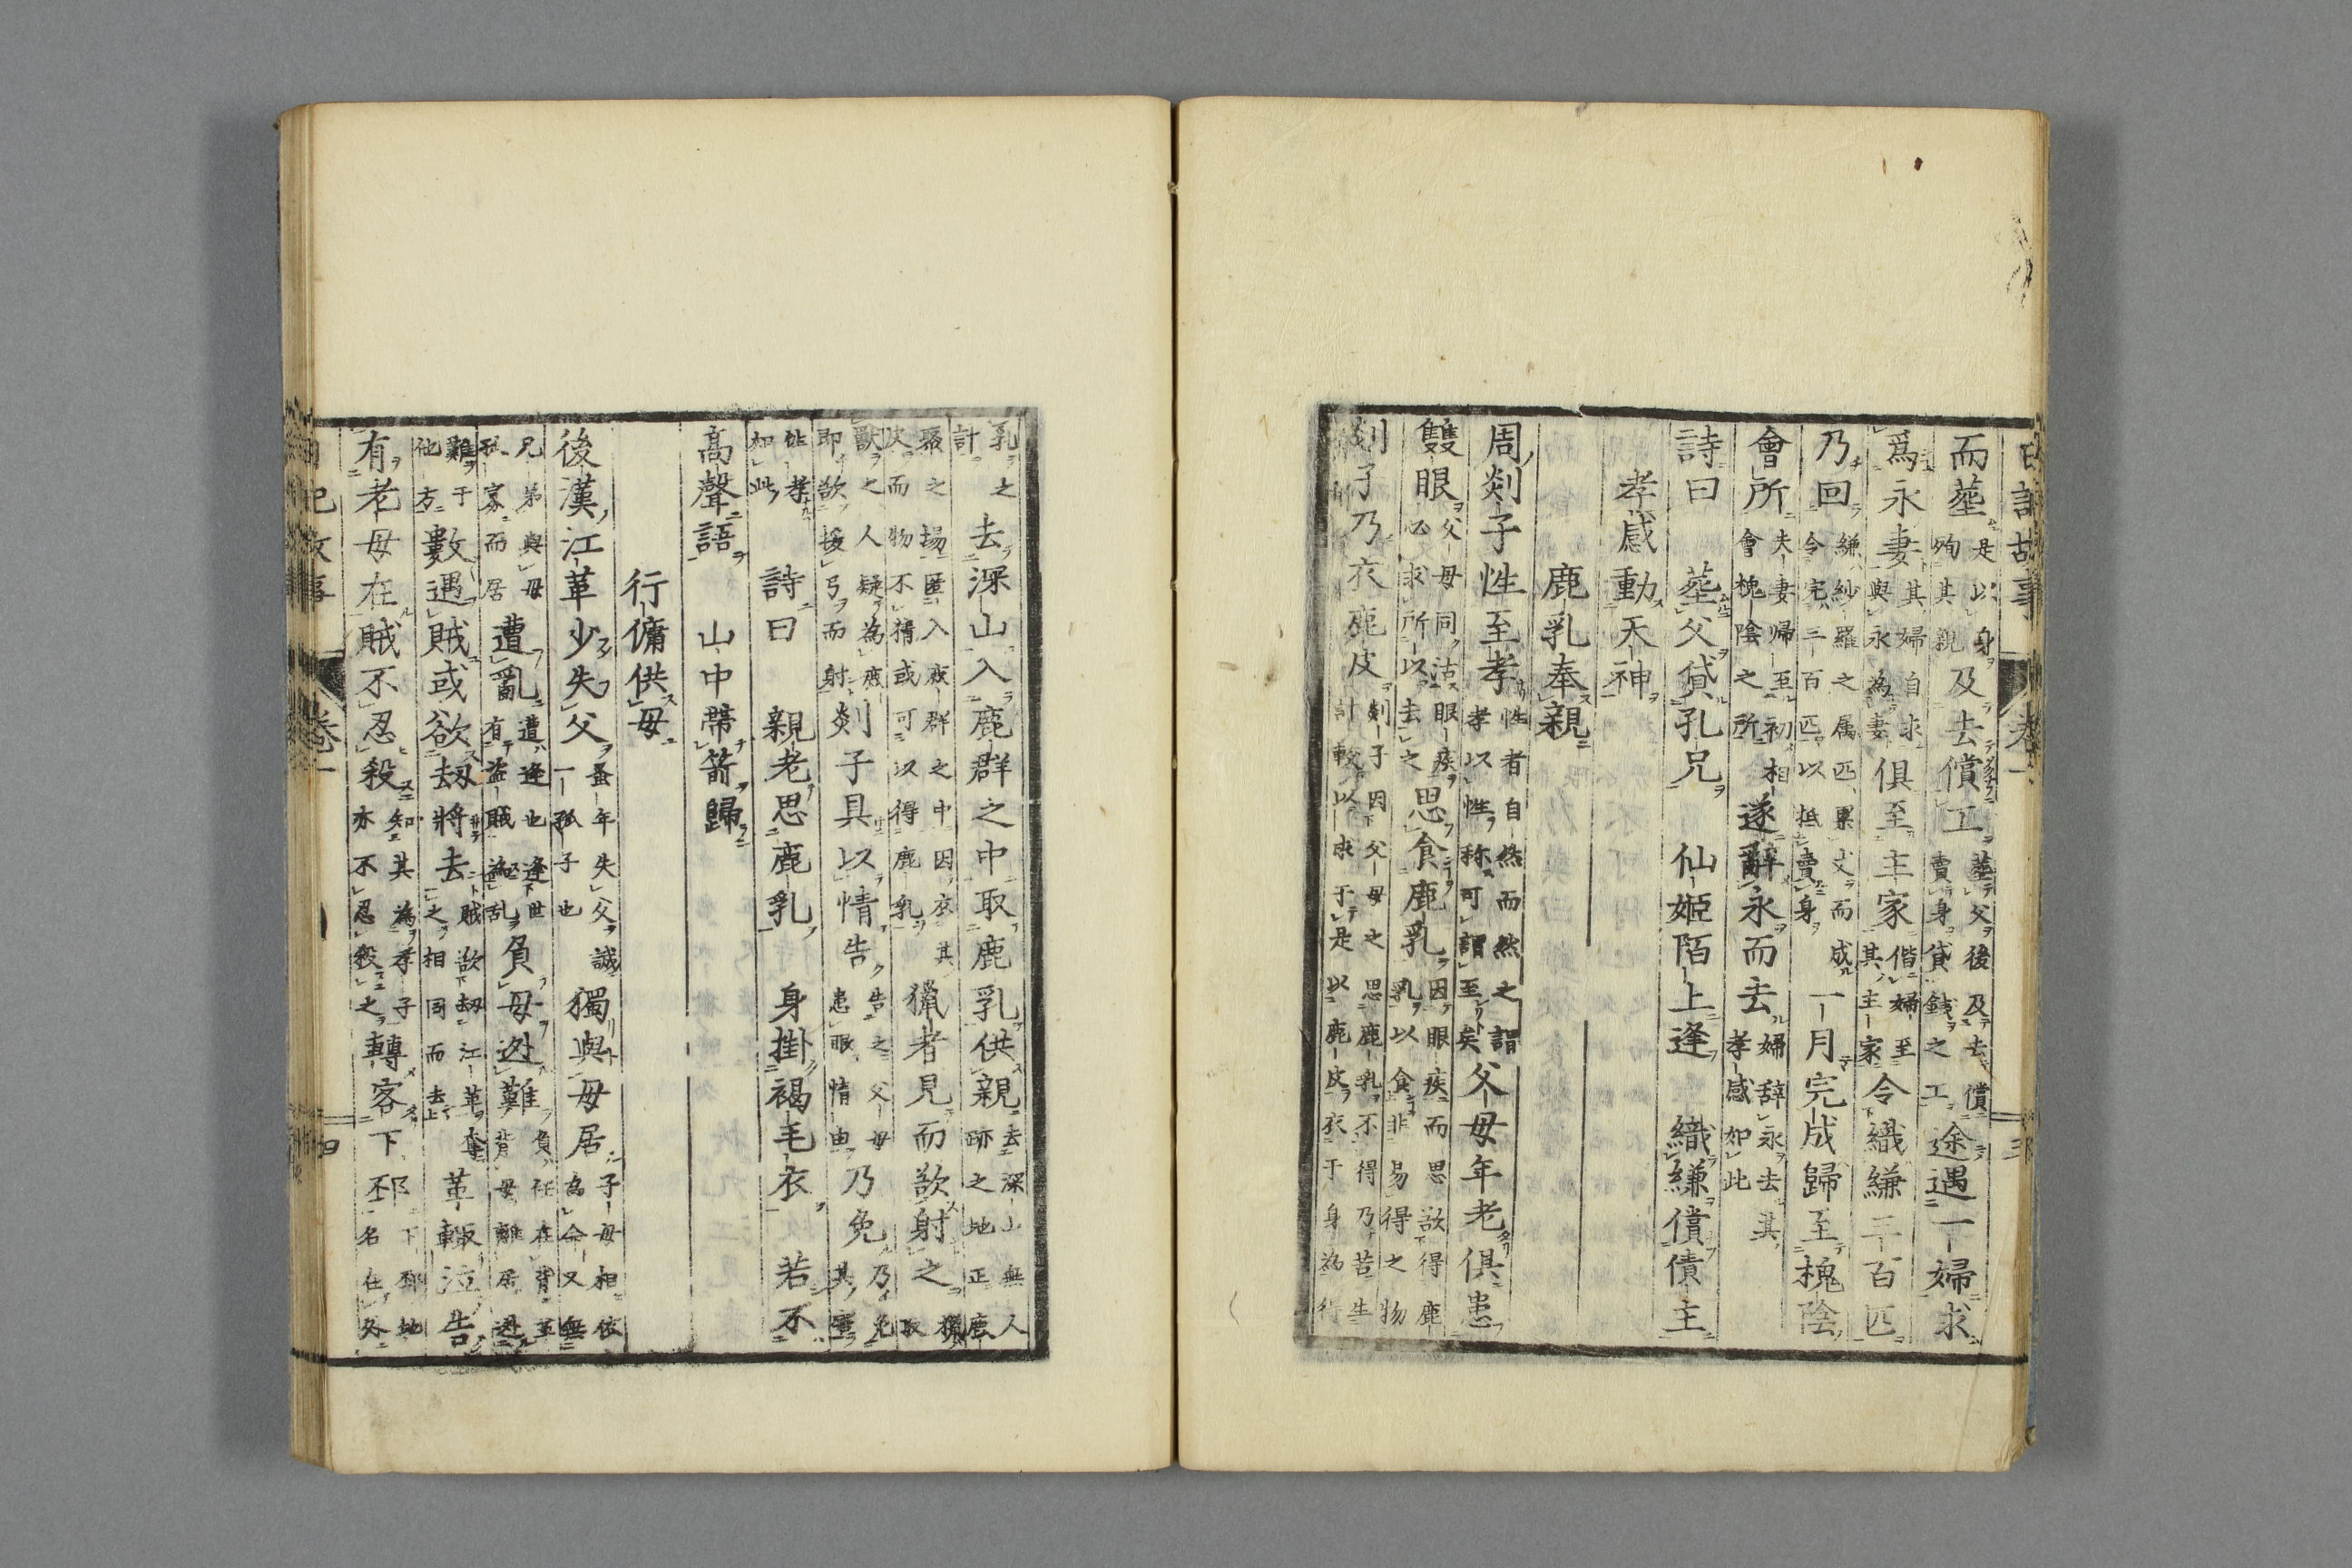 日記故事 卷一 三
而塟是以身殉其親及去償工塟父後及去償賣身貸錢之工途遇一婦求
爲永妻其婦自求與永為妻俱至主家偕婦至其主家令織縑三百匹
乃回縑紗羅之属匹累丈而成令完三百匹以抵賣身一月完成歸至槐陰
會所夫妻帰至初相會槐陰之所遂辭永而去婦辞永去其孝感如此
詩曰 塟父貸孔兄 仙姬陌上逢 織縑償債主
孝感動天神
鹿乳奉親
周剡子性至孝性者自然而然之謂孝以性称可謂至矣父母年老俱患
雙眼父母同沽眼疾必求所以去之思食鹿乳因眼疾而思欲得鹿乳以食非易得之物
剡子乃衣鹿皮剡子因父母之思鹿乳不得乃苦生計較以求于是以鹿皮衣于身為行
乳之計去深山入鹿群之中取鹿乳供親去深山無人跡之地正鹿
聚之場匿入鹿群之中因衣其皮而物不猜或可以得鹿乳獵者見而欲射之獵取
獸之人疑為鹿即欲援弓而射剡子具以情告告之父母患眼情由乃免乃免其害
如此 詩曰 親老思鹿乳 身掛褐毛衣 若不
高聲語 山中帶箭歸
行傭供母
後漢江革少失父蚤年失父誠一孤子也獨與母居子母相依為命又無
兄弟與母孤寡而居遭亂遭逢也逢世有盗賊為乱負母迯難負任在背至背母離居避
難于他方數遇賊或欲刼將去賊欲刼江革奪之相同而去革輙泣告
有老母在賊不忍殺知其為孝子亦不忍殺之轉客下邳下邳地名在久
日記故事 卷一 四